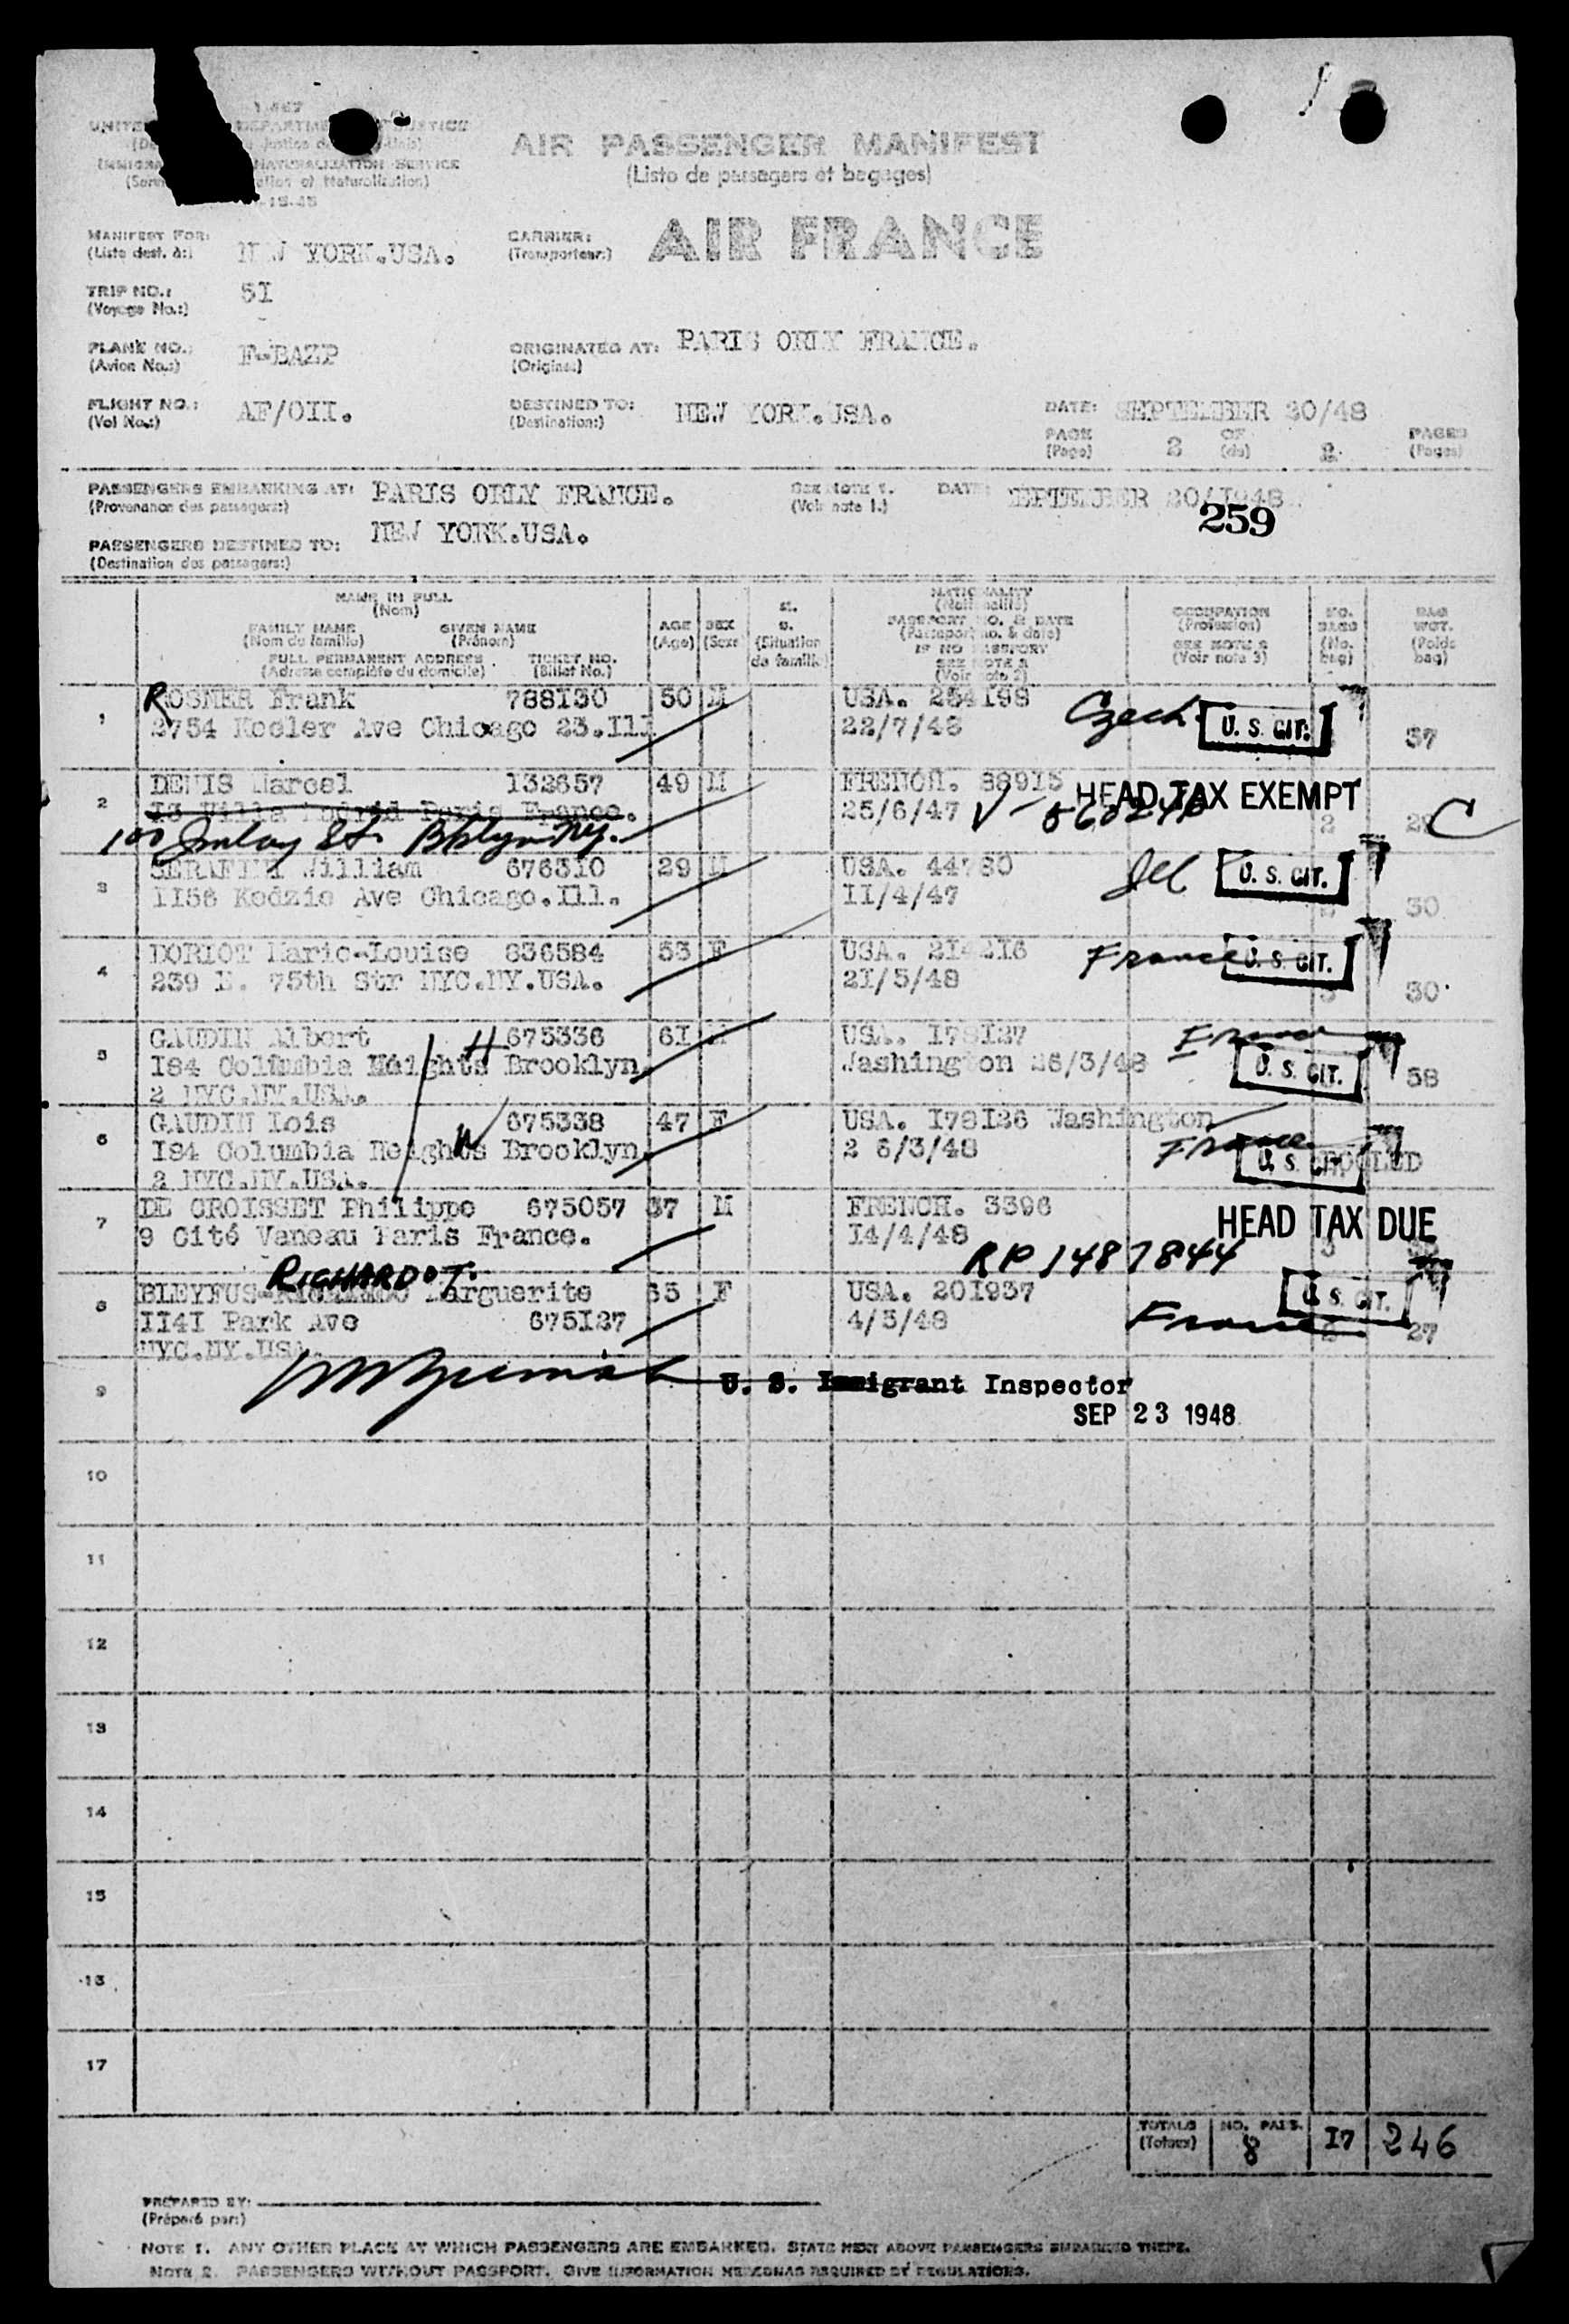 AIR PASSENGER MANIFEST
(Liste de passagers et bagages)
MANIFEST FOR:
(Liste dest. à:)
NEW YORK.USA.
CARRIER:
(Transporteur:)
AIR FRANCE
TRIP NO.:
(Voyage No.:)
5I
PLANE NO.:
(Avion No.:)
F-BAZP
ORIGINATED AT:
(Origine:)
PARIS ORLY FRANCE.
FLIGHT NO.:
(Vol No.:)
AF/OII.
DESTINED TO:
(Destination:)
NEW YORK.USA.
DATE: SEPTEMBER 20/48
PAGE 2 OF 2 PAGES
(Page) (de) (Pages)
PASSENGERS EMBARKING AT: PARIS ORLY FRANCE.
(Provenance des passagers:)
SEE NOTE 1.
(Voir note 1.)
DATE: SEPTEMBER 20/1948.
259
PASSENGERS DESTINED TO: NEW YORK.USA.
(Destination des passagers:)
NAME IN FULL
(Nom)
FAMILY NAME GIVEN NAME
(Nom de famille) (Prénom)
FULL PERMANENT ADDRESS TICKET NO.
(Adresse complète du domicile) (Billet No.)
AGE
(Age)
SEX
(Sexe)
(Situation
de famille)
NATIONALITY
(Nationalité)
PASSPORT NO. & DATE
(Passeport no. & date)
IF NO PASSPORT
SEE NOTE 2
(Voir note 2)
OCCUPATION
(Profession)
SEE NOTE 3
(Voir note 3)
NO.
BAGS
(No.
bag)
BAG
WGT.
(Poids
bag)
1 ROSNER Frank 788I30 50 M USA. 254I98 Czech. U. S. CIT.
2754 Keeler Ave Chicago 23.Ill 22/7/48 37
2 DENIS Marcel I32657 49 M FRENCH. 889I5 HEAD TAX EXEMPT
25/6/47 2 C
Bklyn Ny.
3 SERAFINI William 6763I0 29 M USA. 44780 U. S. CIT.
II56 Kedzie Ave Chicago.Ill. II/4/47 30
4 DORIOT Marie-Louise 836584 53 F USA. 2I42I6 France U. S. CIT.
239 E. 75th Str NYC.NY.USA. 2I/5/48 3 30
5 GAUDIN Albert H 675336 6I M USA. I78I27 France
I84 Columbia Heights Brooklyn. Washington 26/3/48 U. S. CIT. 58
2 NYC.NY.USA.
6 GAUDIN Lois W 675338 47 F USA. I78I26 Washington
I84 Columbia Heights Brooklyn. 2 6/3/48 France U. S. CIT. POOLED
2 NYC.NY.USA.
7 DE CROISSET Philippe 675057 37 M FRENCH. 3396 HEAD TAX DUE
9 Cité Vaneau Paris France. I4/4/48 3
RP 1487844
RICHARDOT.
8 Marguerite F USA. 20I937 U. S. CIT.
II4I Park Ave 675I27 4/5/48 France 27
NYC.NY.USA.
9 U. S. Immigrant Inspector
SEP 23 1948
10
11
12
13
14
15
16
17
TOTALS
(Totaux)
NO. PASS.
8
I7
246
PREPARED BY:
(Préparé par:)
NOTE 1. ANY OTHER PLACE AT WHICH PASSENGERS ARE EMBARKED, STATE NEXT ABOVE PASSENGERS EMBARKED THERE.
NOTE 2. PASSENGERS WITHOUT PASSPORT, GIVE INFORMATION REQUIRED BY REGULATIONS.